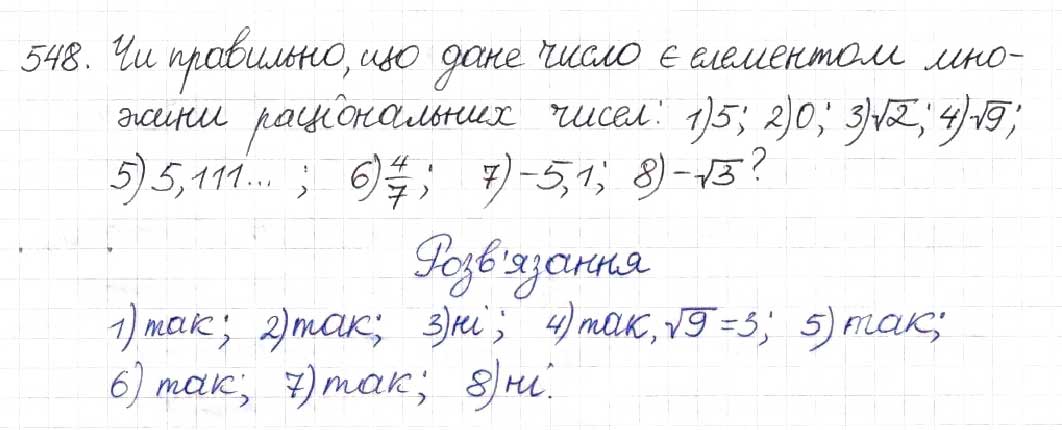 548. Чи правильно, що дане число є елементом мно-
жини раціональних чисел: 1) 5; 2) 0; 3) √2; 4) √9;
5) 5,111... ; 6) 4/7; 7) -5,1; 8) -√3?
Розв'язання
1) так; 2) так; 3) ні; 4) так, √9 = 3; 5) так;
6) так; 7) так; 8) ні.